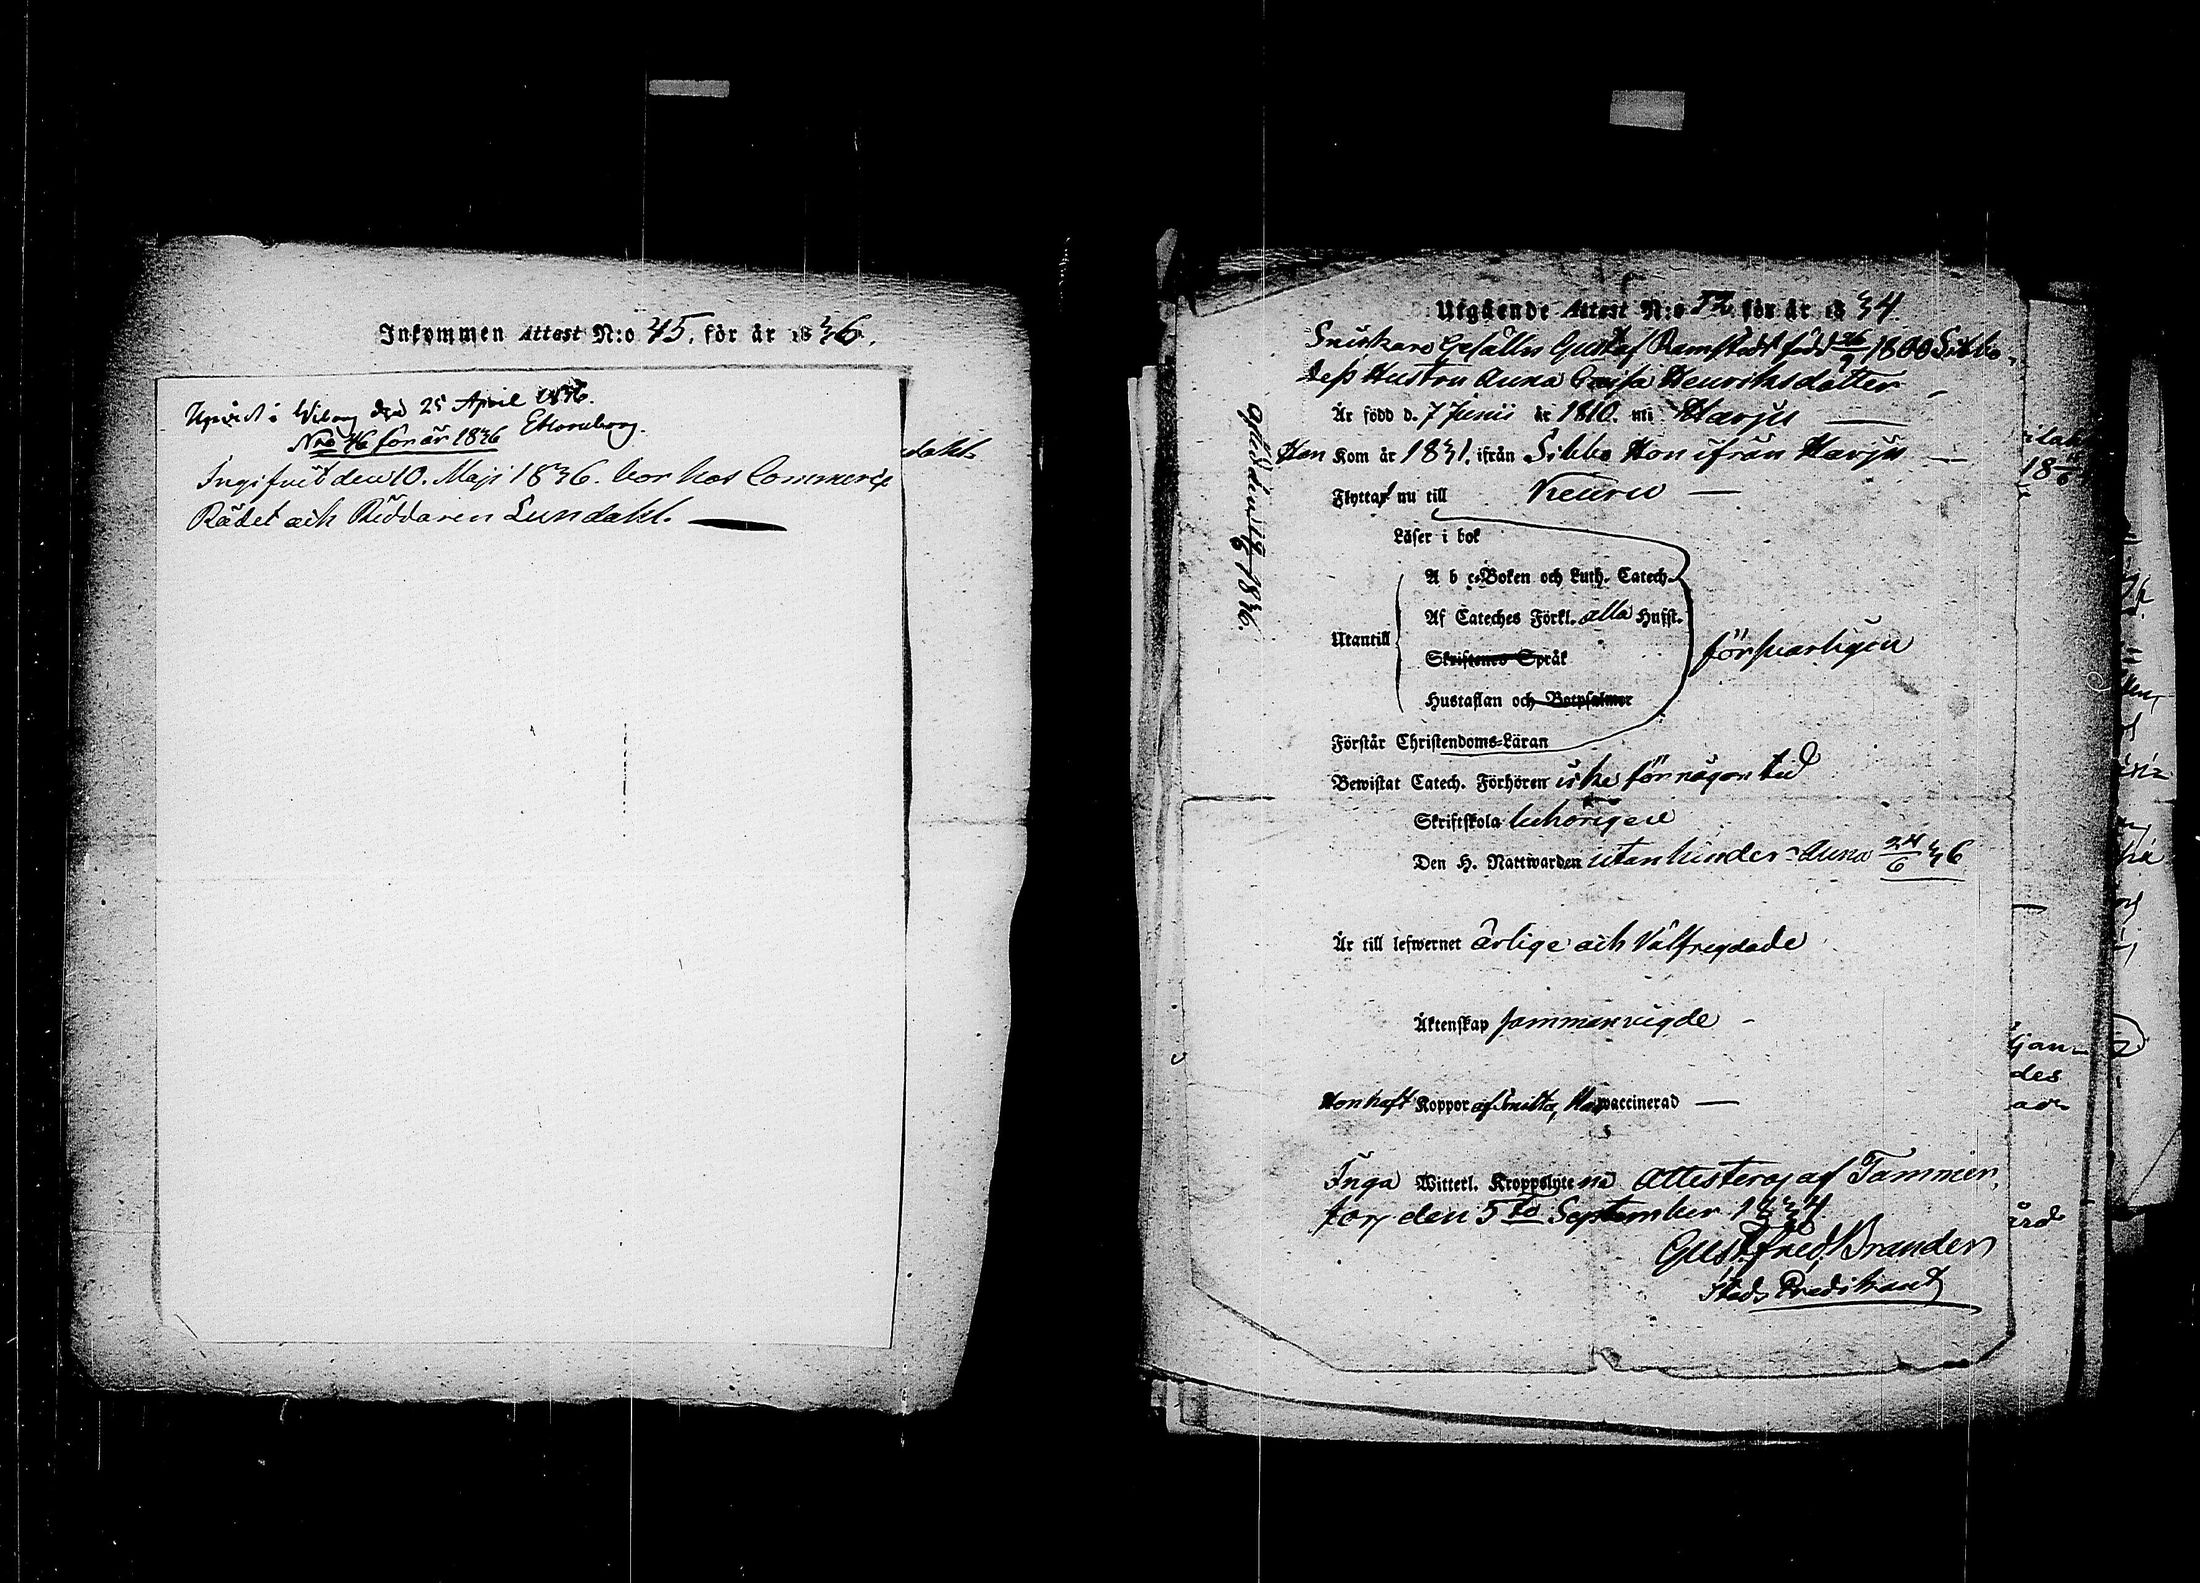 Inkommen Attest N:o 45. för år 1836.
Upvist i Wiborg den 25 April 1836.
Nro 46 för år 1836
Ingifvit den 10. Maji 1836. bor hos Commerce
Rådet och Riddaren Lundahl.
Utgående Attest N:o 52 för år 1834
Snickare Gesällen Gustaf Ramstedt född 26/9 1800 Sibbo,
dess Hustru Anna Caisa Henriksdotter
Är född d. 7 Junii år 1810. uti Harju —
Han Kom år 1831. ifrån Sibbo Hon ifrån Harju —
Flyttar nu till Keuru —
Läser i bok
A b c-Boken och Luth. Catech.
Af Cateches Förkl. alla Hufst.
Utantill
Skriftenes Språk
försvarligen
Hustaflan och Botpsalmer
Förstår Christendoms-Läran
Bewistat Catech. Förhören icke för någon tid
Skriftskola behörigen
Den H. Nattwarden utan hinder Anna 24/6 36
Är till lefwernet ärlige och Välfregdade
Äktenskap sammanvigde -
Hon haft Koppor af Smitta, Han waccinerad —
Inga Witterl. Kroppslyten Attesteras af Tammer,
fors den 5to September 1834
Gust. Fred. Brander
Stads Predikant
1836.